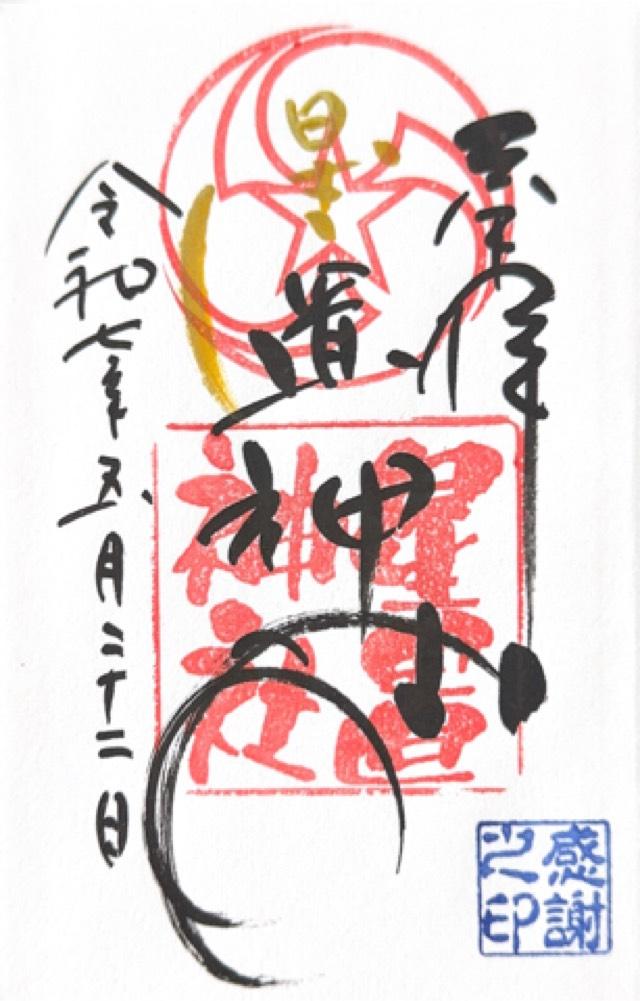 星
神
令和七年五月二十二日
星置
神社
感謝
之印